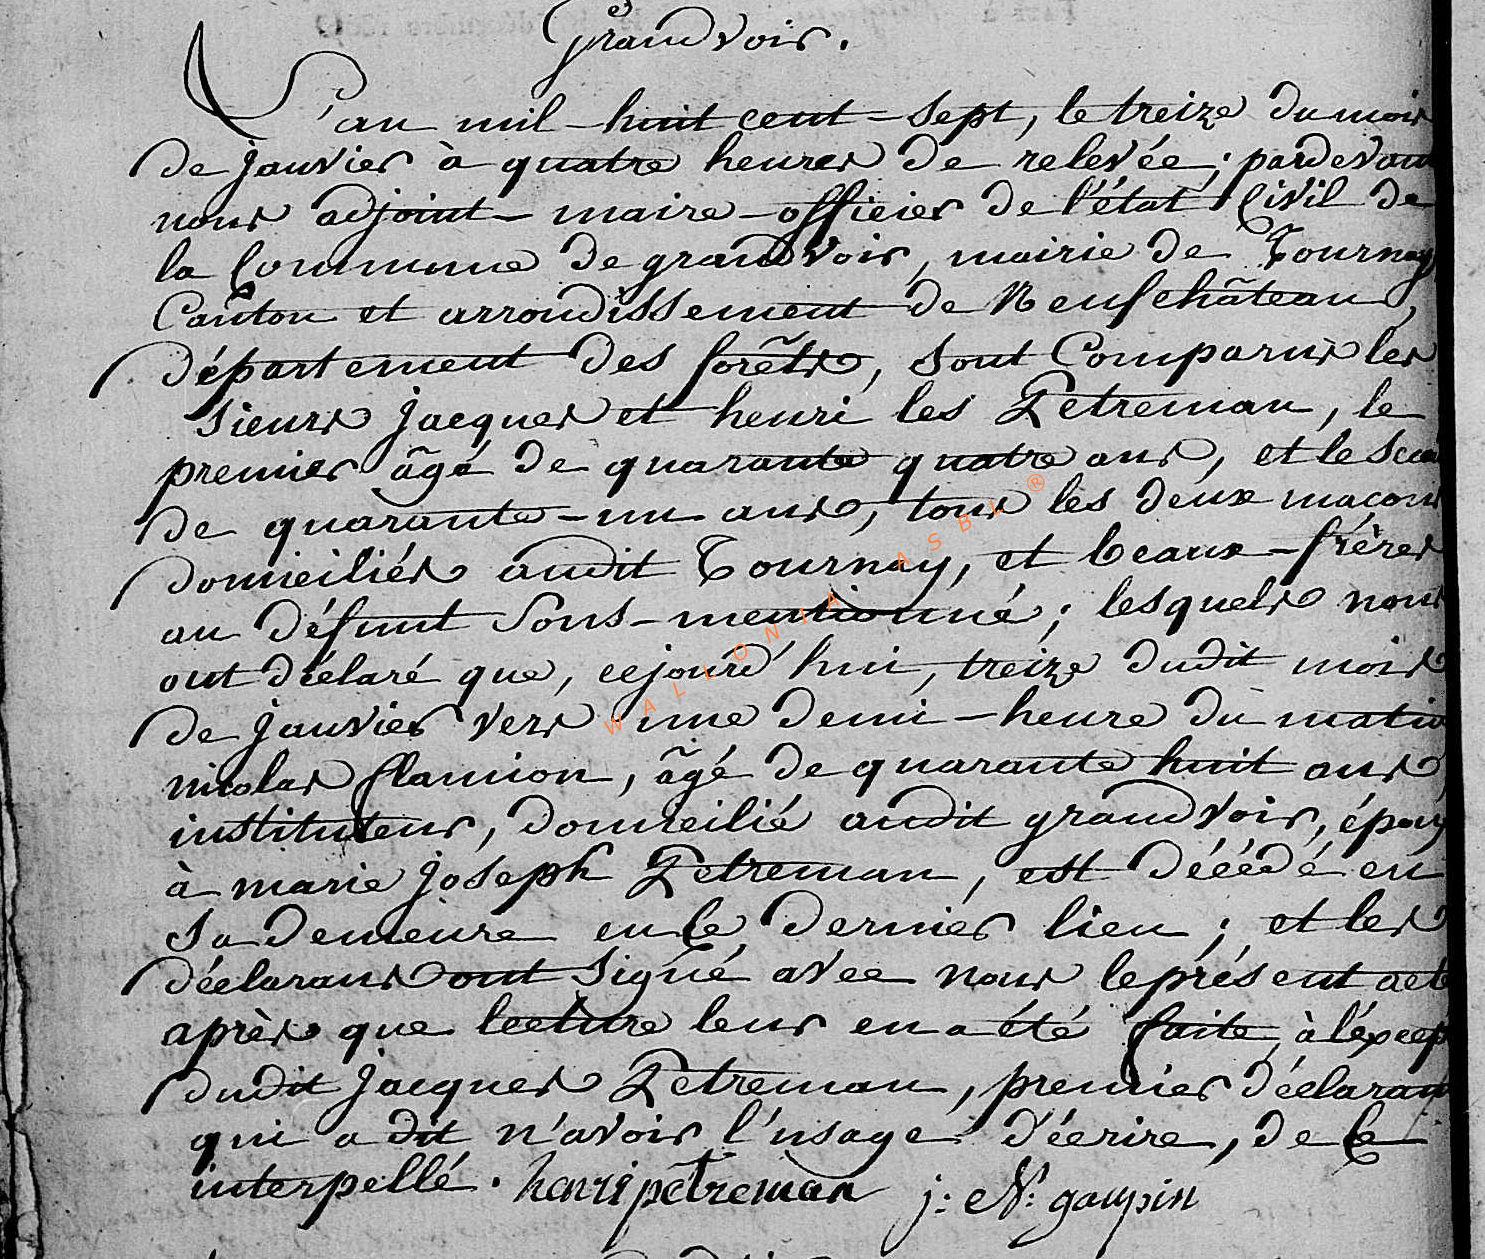 Grandvoir.
L'an mil-huit cent-sept, le treize du mois
de janvier à quatre heures de relevée; pardevant
nous adjoint-maire-officier de l'état Civil de
la Commune de grandvoir, mairie de Tournay
Canton et arrondissement de Neufchâteau,
département des forêts, sont Comparus les
sieurs jacques et henri les Petreman, le
premier âgé de quarante quatre ans, et le
de quarante-un ans, tous les deux maçons
domiciliés audit Tournay, et beaux-frères
au défunt sous-mentionné; lesquels nous
ont déclaré que, cejourd'hui, treize dudit mois
de janvier vers une demi-heure du matin
nicolas flamion, âgé de quarante huit ans,
instituteur, domicilié audit grandvoir, époux
à marie joseph Petreman, est décédé en
sa demeure en ce dernier lieu; et les
déclarans ont signé avec nous le présent acte
après que lecture leur en a été faite, à l'excep
dudit jacques Petreman, premier déclarant
qui a dit n'avoir l'usage d'écrire, de ce
interpellé. henri petreman j: N: gaupin
WALLONIA ASBL ®